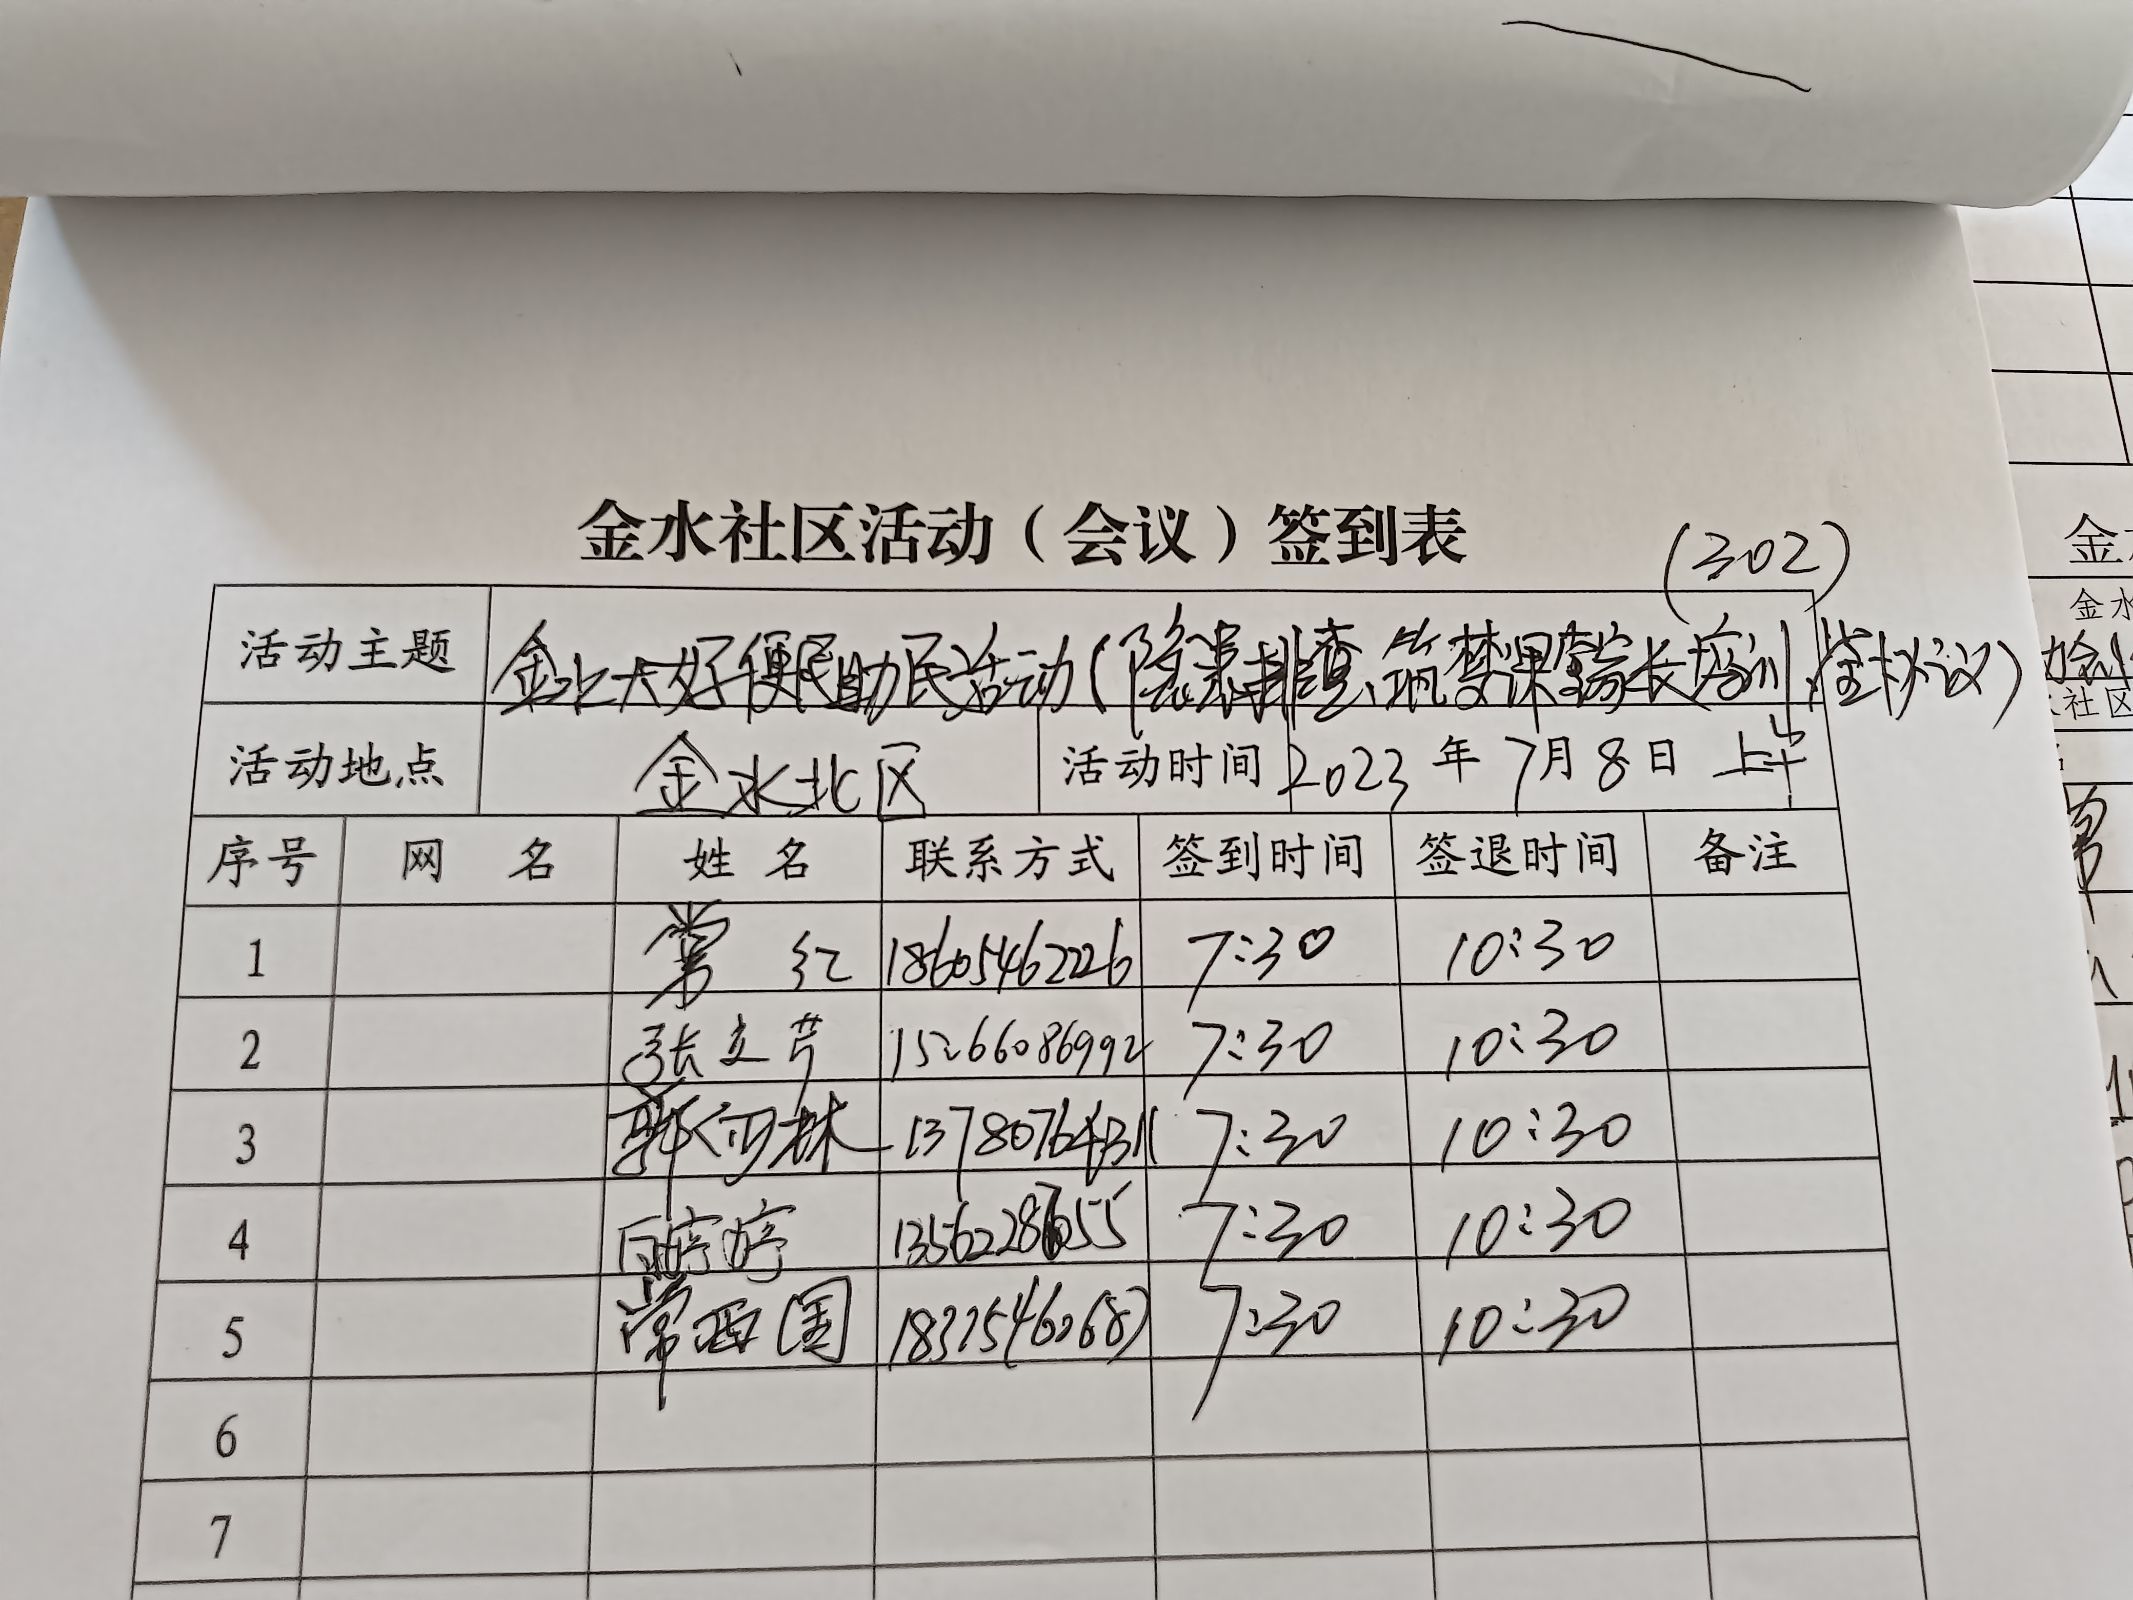 金水社区活动（会议）签到表
(302)
活动主题 金水大好便民助民活动(隐患排查、筑梦课堂家长培训、签协议)
活动地点 金水北区 活动时间 2023年7月8日 上午
序号 网名 姓名 联系方式 签到时间 签退时间 备注
1 常红 18605462226 7:30 10:30
2 张立芹 15266086992 7:30 10:30
3 13780764311 7:30 10:30
4 白婷婷 13562287655 7:30 10:30
5 常西国 7:30 10:30
6
7
金水
社区